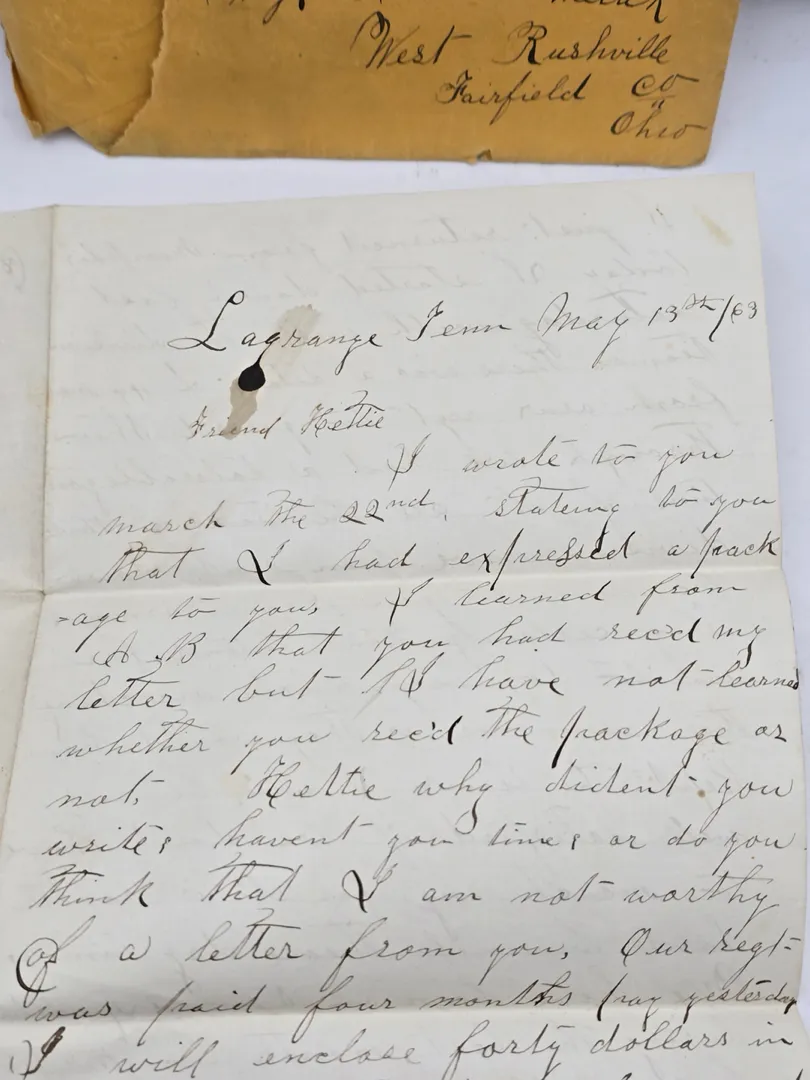 West Rushville
Fairfield Co
Ohio
Lagrange Tenn May 13th/63
Friend Hettie
I wrote to you
march the 22nd, stateing to you
that I had expressed a pack
-age to you, I learned from
A B that you had rec'd my
letter but I have not learned
whether you rec'd the package or
not. Hettie why dident you
write, havent you time, or do you
think that I am not worthy
of a letter from you. Our regt
was paid four months pay yesterday
I will enclose forty dollars in